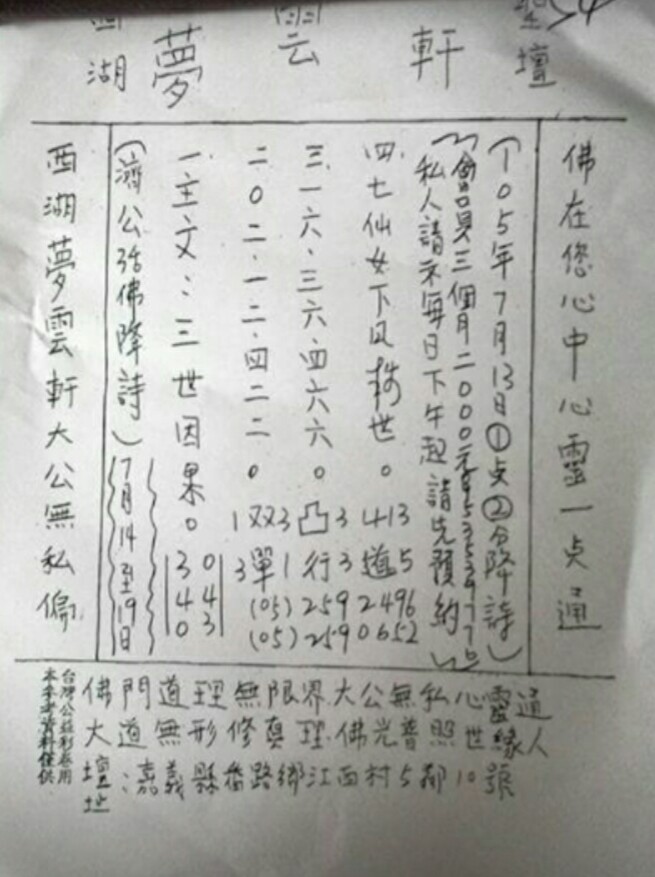 西湖 夢雲軒 聖壇
佛在您心中心靈一点通
(105年7月13日①点②分降詩)
會員三個月二000元
私人請示每日下午起請先預約
四.七仙女下凡救世。413道5
三.一六.三六.四六六。凸3行3
二0二.一二.四二二。1双3 3單1
(05)2592496
(05)2590652
一主文：三世因果。
340
043
(濟公活佛降詩)
7月14至19日
西湖夢雲軒大公無私偏
佛門道理無限界大公無私心靈通
大道無形修真理.佛光普照世緣人
壇地：嘉義縣番路鄉江西村5鄰10號
台灣公益彩卷用
本參考資料僅供